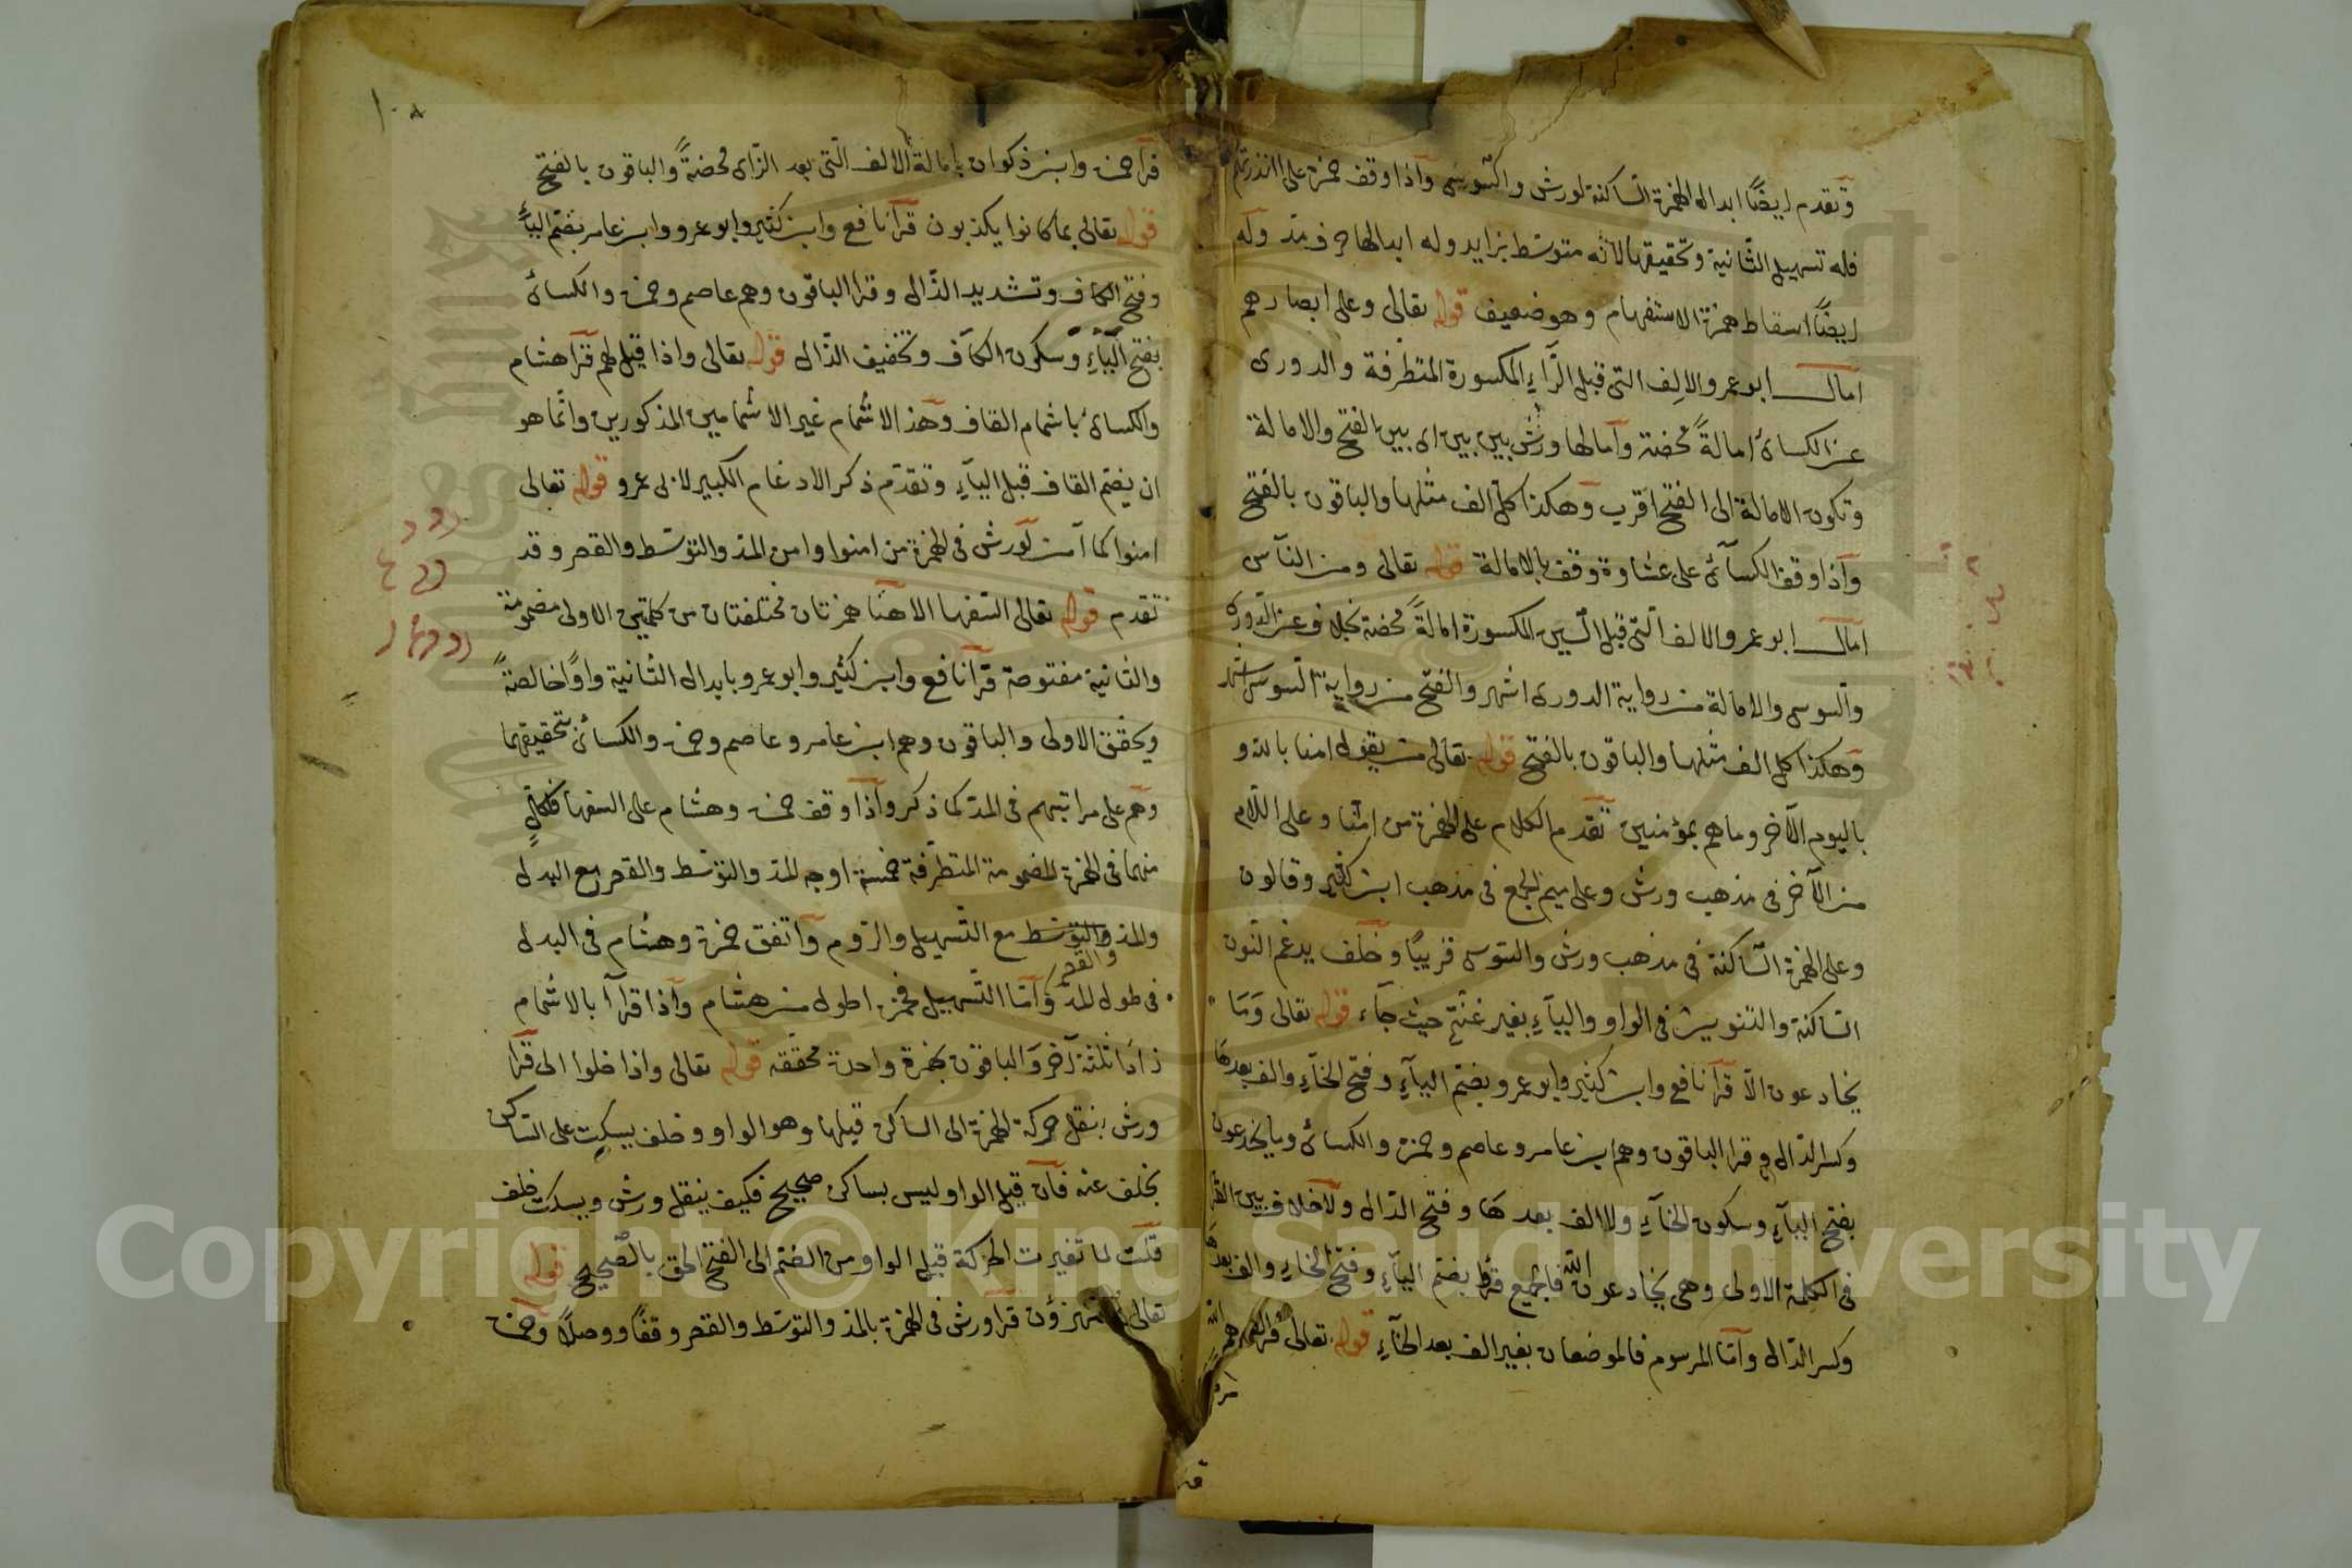 وتقدم ايضًا ابدال الهمزة الساكنة لورش والسّوسى وآذا وقف حمزة على اانذرتهم
فله تسهيل الثّانية وتحقيقها لانّه متوسّط بزايد وله ابدالها حرف مدّ وله
ايضًا اسقاط همزة الاستفهام وهو ضعيف قوله تعالى وعلى ابصارهم
امال ابو عمرو الالف التى قبل الرّآءِ المكسورة المتطرّفة والدورى
عن الكسائ امالةً محضة وآمالها ورش بين بين اى بين الفتح والامالة
وتكون الامالة الى الفتح اقرب وهكذا كلّ الف مثلها والباقون بالفتح
وآذا وقف الكسآئ على غشاوة وقف بالامالة قوله تعالى ومن النآس
امال ابو عمرو الالف الّتى قبل السّين المكسورة امالةً محضة بخلاف عن الدّورى
والسّوسى والامالة من رواية الدورى اشهر والفتح من رواية السوسى اشهر
وهكذا كل الف مثلها والباقون بالفتح قوله تعالى من يقول امنا بالله و
باليوم الآخر وما هم بمؤمنين تقدم الكلام على الهمزة من امنّا وعلى اللّام
من الآخر فى مذهب ورش وعلى ميم الجمع فى مذهب ابن كثير وقالون
وعلى الهمزة السّاكنة فى مذهب ورش والسّوسى قريبًا وخلف يدغم النّون
السّاكنة والتنوين فى الواو واليآءِ بغير غنّة حيث جآء قوله تعالى وَمَا
يخادعون الّا قرآ نافع وابن كثير وابو عمرو بضم اليآءِ وفتح الخآءِ والف بعدها
وكسر الدّال وقرا الباقون وهم ابن عامر وعاصم وحمزة والكسائ وما يخدعون
بفتح اليآءِ وسكون الخآءِ ولا الف بعدها وفتح الدّال ولا خلاف بين القرآ
فى الكلمة الاولى وهى يخادعون الله فالجميع قرؤا بضم اليآءِ وفتح الخآءِ والف بعدها
وكسر الدّال وآمّا المرسوم فالموضعان بغير الف بعد الخآءِ قوله تعالى فزادهم الله
مرضا
١٠٨
قرآ حمزة وابن ذكوان بامالة الالف الّتى بعد الزّاى محضةً والباقون بالفتح
قوله تعالى بما كانوا يكذبون قرآ نافع وابن كثير وابو عمرو وابن عامر بضم اليآءِ
وفتح الكاف وتشديد الذّال وقرا الباقون وهم عاصم وحمزة والكسائ
بفتح اليآءِ وسكون الكآف وتخفيف الذّال قوله تعالى واذا قيل لهم قرآ هشام
والكسائ باشمام القاف وهذا الاشمام غير الاشمامين المذكورين وانّما هو
ان يضم القاف قبل اليآءِ وتقدّم ذكر الادغام الكبير لابى عمرو قوله تعالى
امنوا كما آمن لورش فى الهمزة من امنوا وامن المدّ والتوسّط والقصر وقد
تقدم قوله تعالى السّفهآ الا هنا همزتان مختلفتان من كلمتين الاولى مضمومة
والثانية مفتوحة قرآ نافع وابن كثير وابو عمرو بابدال الثانية واوًا خالصةً
وتحقيق الاولى والباقون وهم ابن عامر وعاصم وحمزة والكسائ بتحقيقهما
وهم على مراتبهم فى المدّ كما ذكر وآذا وقف حمزة وهشام على السفها فلكلٍّ
منهما فى الهمزة المضمومة المتطرّفة خمسة اوجه المدّ والتوسّط والقصر مع البدل
والمدّ والتوسّط مع التّسهيل والرّوم وآتفق حمزة وهشام فى البدل
والقصر
فى طول المدّ وآمّا التّسهيل فحمزة اطول من هشام وآذا قرآ بالاشمام
زادَا ثلثة آخر والباقون بهمزة واحدة محقّقه قوله تعالى واذا خلوا الى قرآ
ورش بنقل حركة الهمزة الى الساكن قبلها وهو الواو وخلف يسكت على السّاكن
بخلف عنه فآن قيل الواو ليس بساكن صحيح فكيف ينقل ورش ويسكت خلف
قلت لما تغيرت الحركة قبل الواو من الضم الى الفتح الحق بالصّحيح قوله
تعالى مستهزؤن قرآ ورش فى الهمزة بالمدّ والتوسّط والقصر وقفًا ووصلًا وحمزة
Copyright © King Saud University